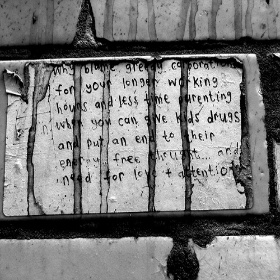 Why blame greedy corporations
for your longer working
hours and less time parenting
when you can give kids drugs
and put an end to their
energy, free thought... and
need for love + attention